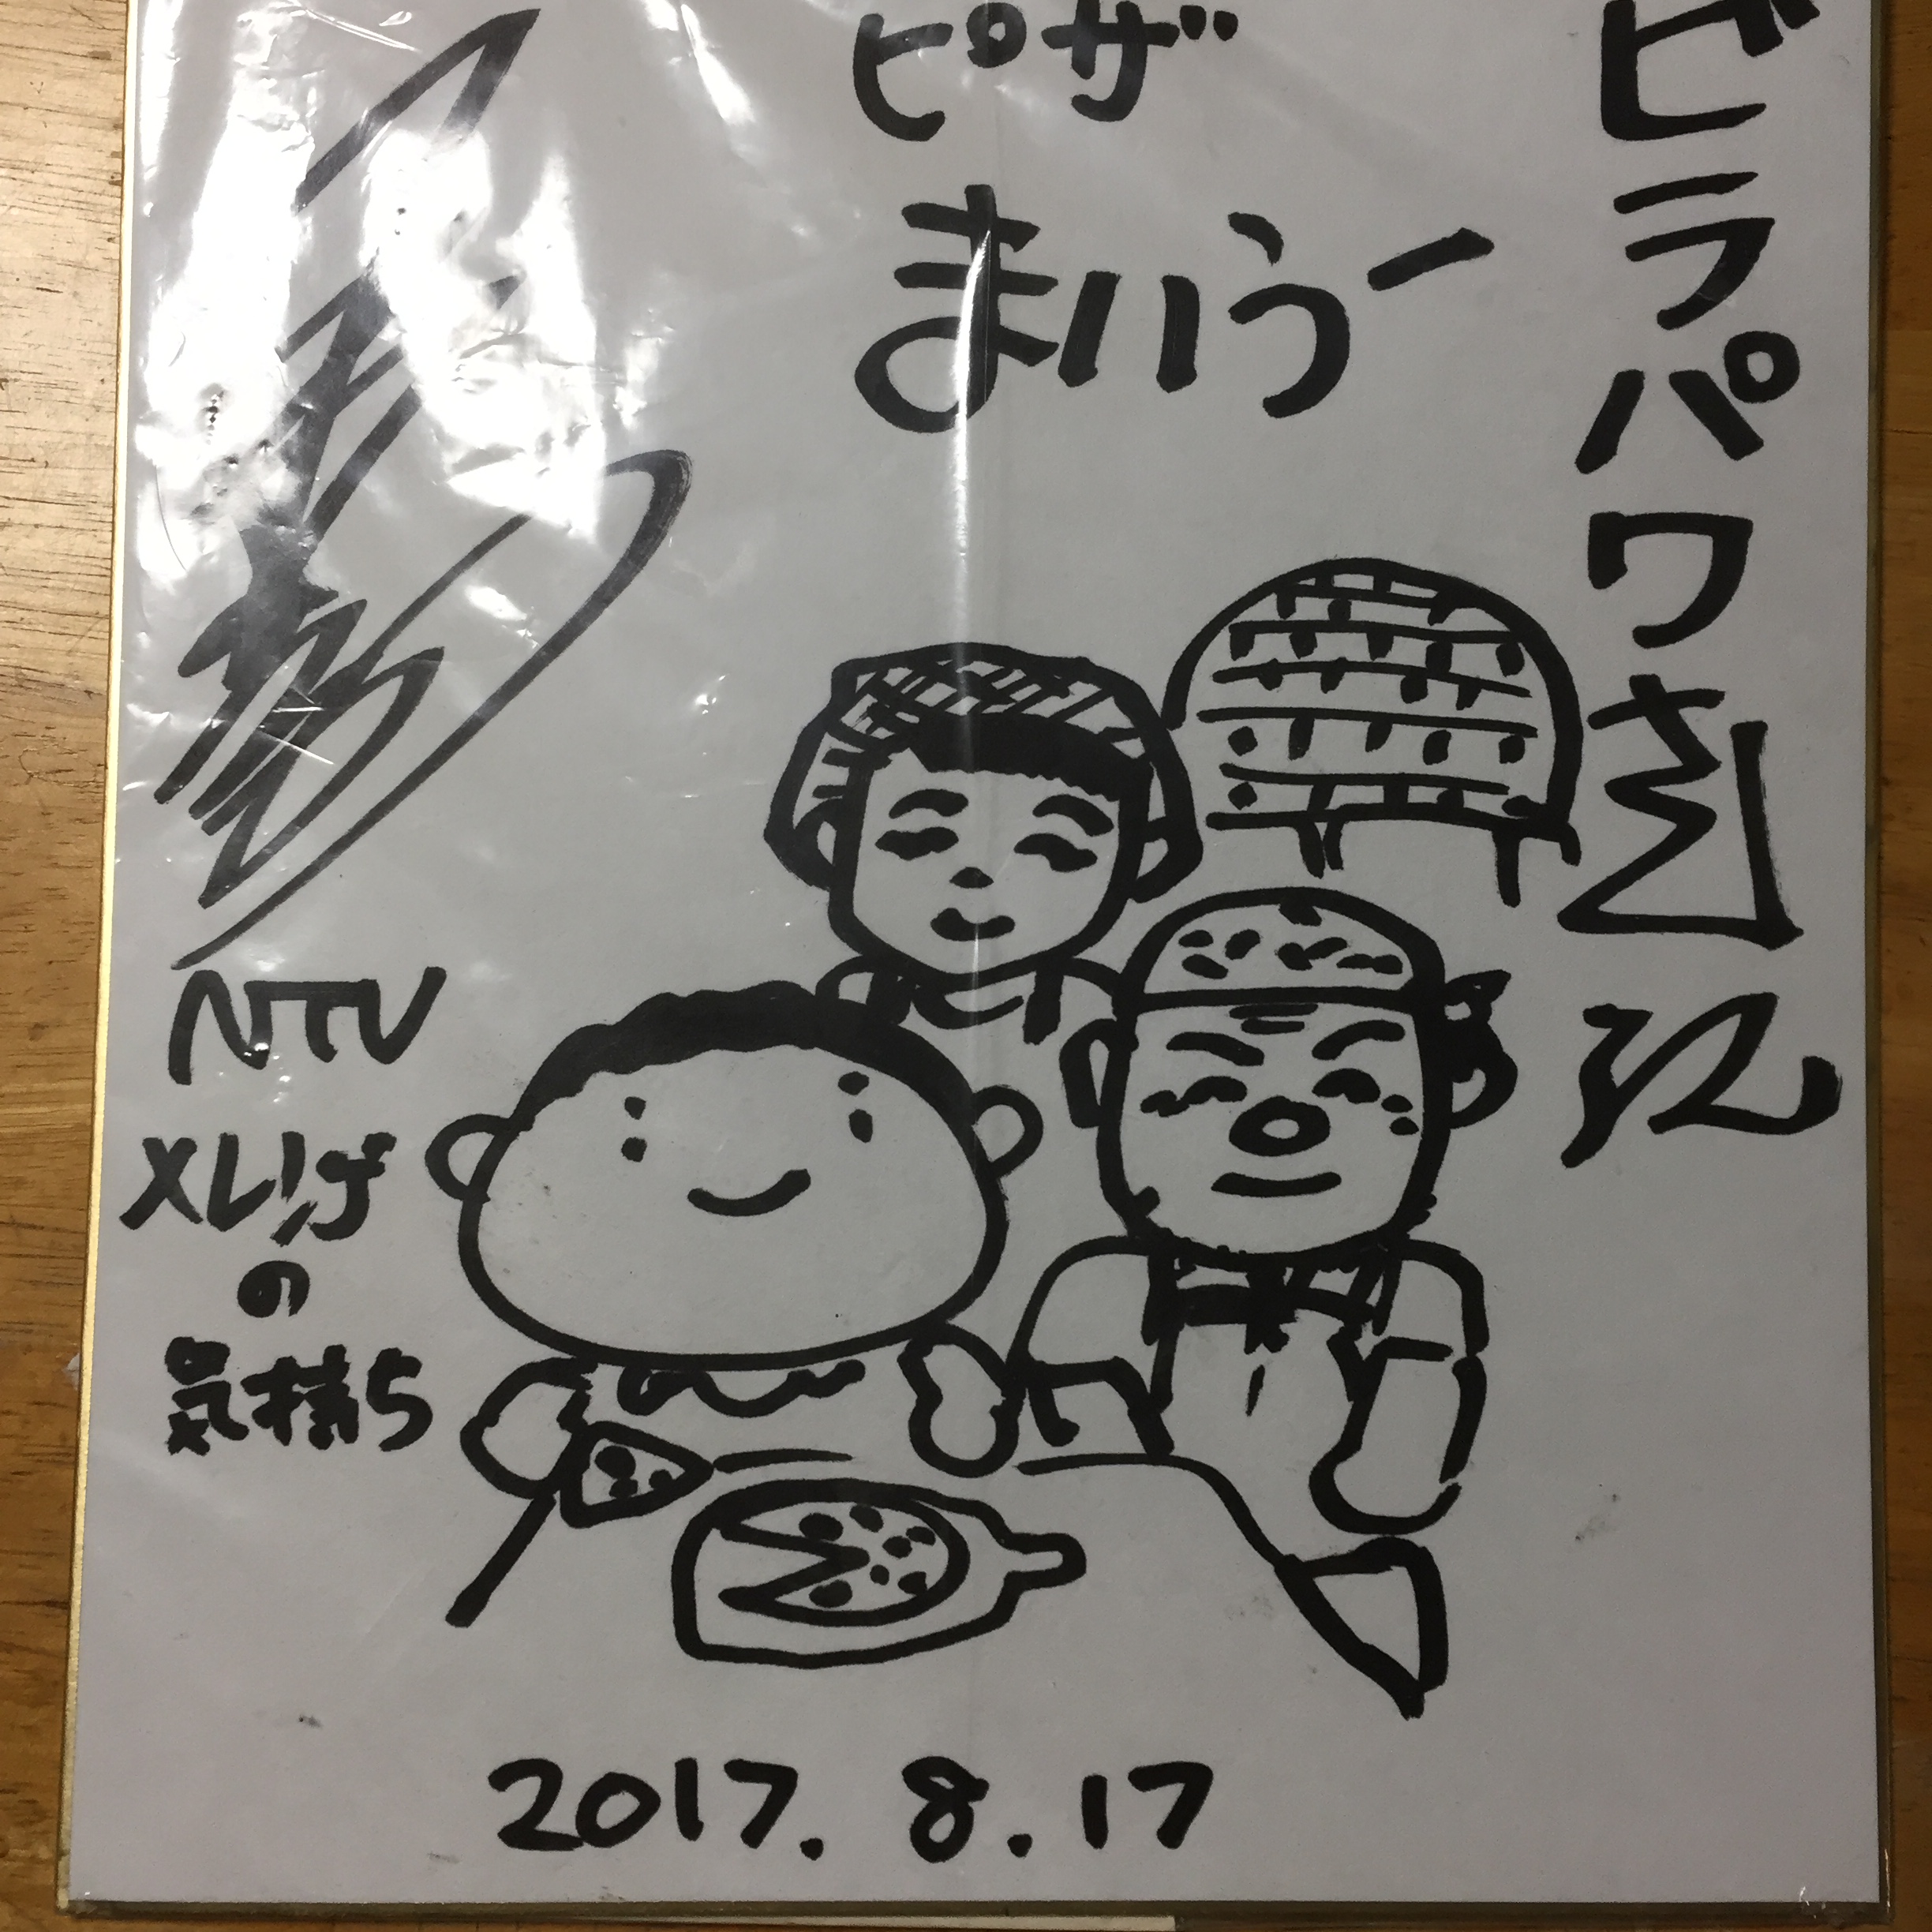 ビラパワさん江
ピザ
まいうー
NTV
メレンゲ
の
気持ち
2017.8.17